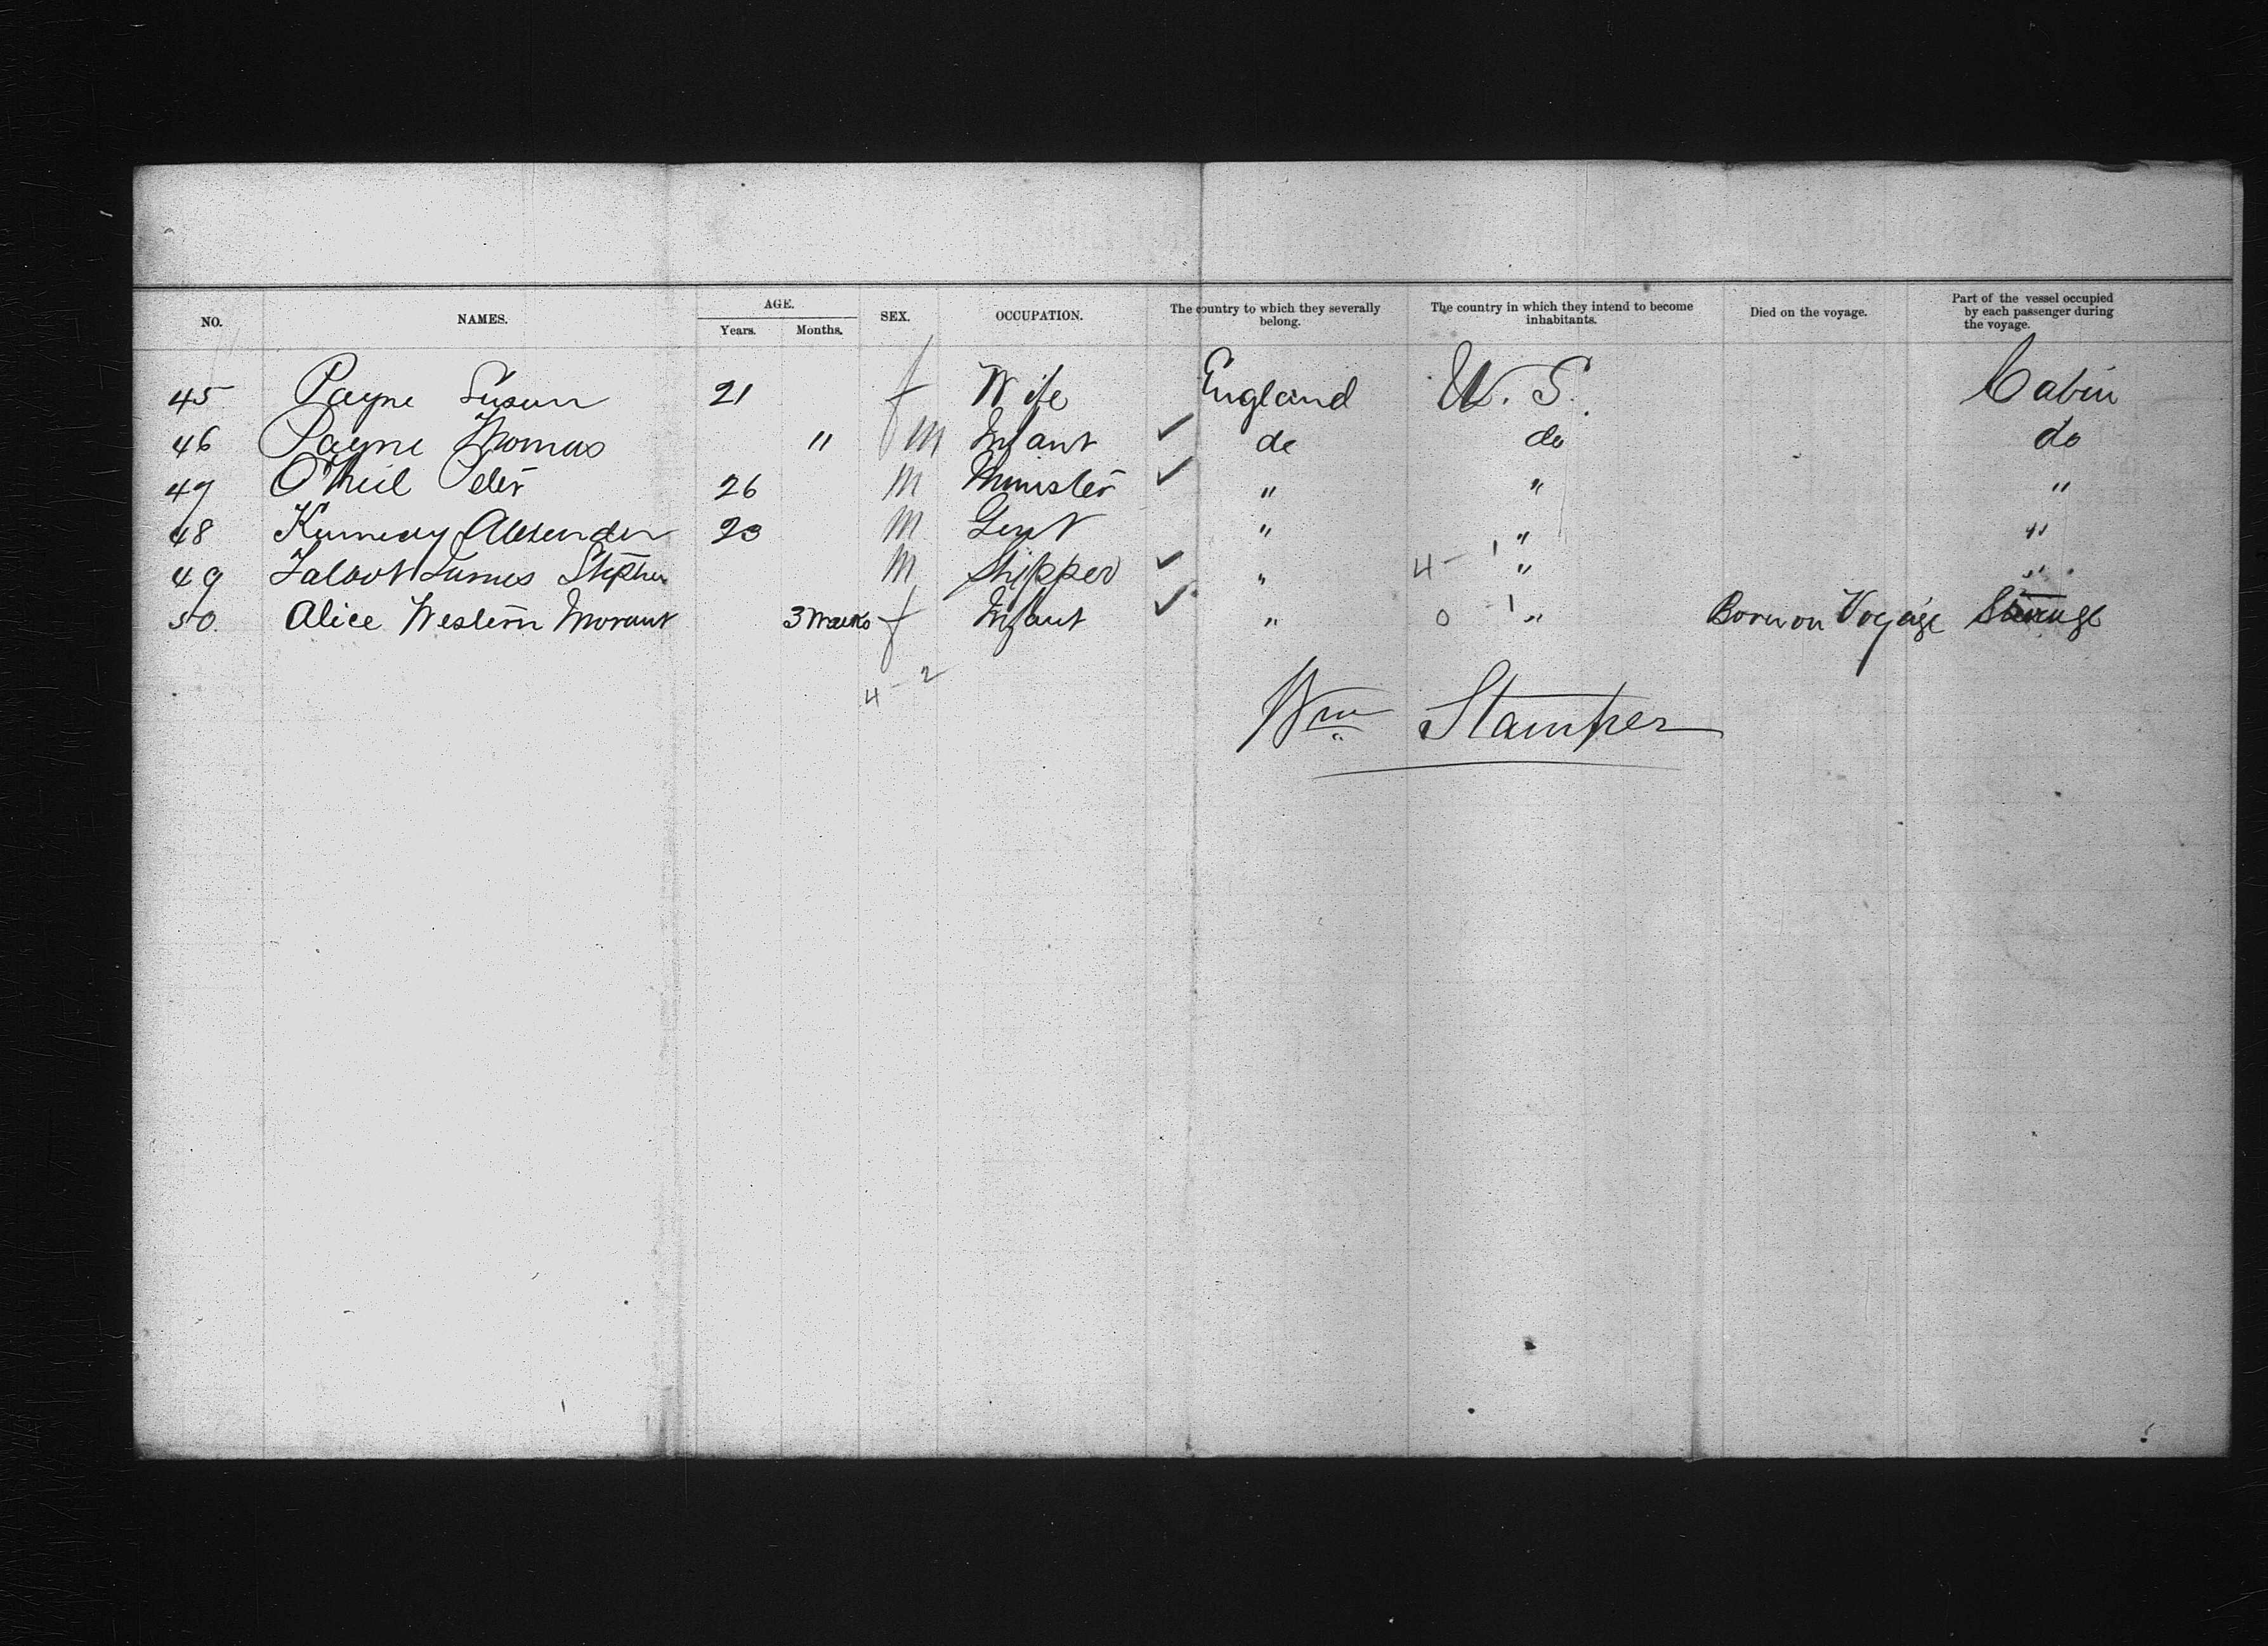 NO. NAMES. AGE. Years. Months. SEX. OCCUPATION. The country to which they severally belong. The country in which they intend to become inhabitants. Died on the voyage. Part of the vessel occupied by each passenger during the voyage.
45 Payne Susan 21 f Wife England U.S. Cabin
46 Payne Thomas 11 m Infant ✓ do do do
47 O'Neil Peter 26 m Minister ✓ " " "
48 Kennedy Alexander 23 m Gent " " "
49 Talbot James Stephen m Shipper ✓ " 4 - 1 " "
50. Alice Western Morant 3 Weeks f Infant ✓ " 0 - 1 " Born on Voyage Steerage
4 - 2
Wm Stamper